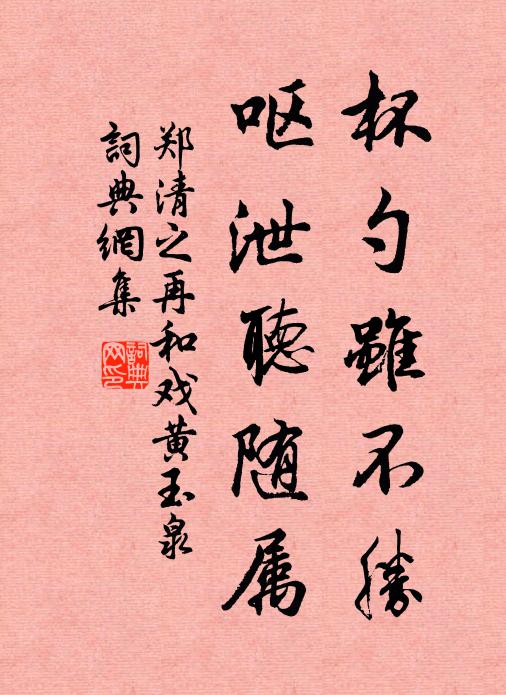 杯勺雖不勝
呕泄聽随属
郑清之再和戏黄玉泉
詞典網集
詞典网印